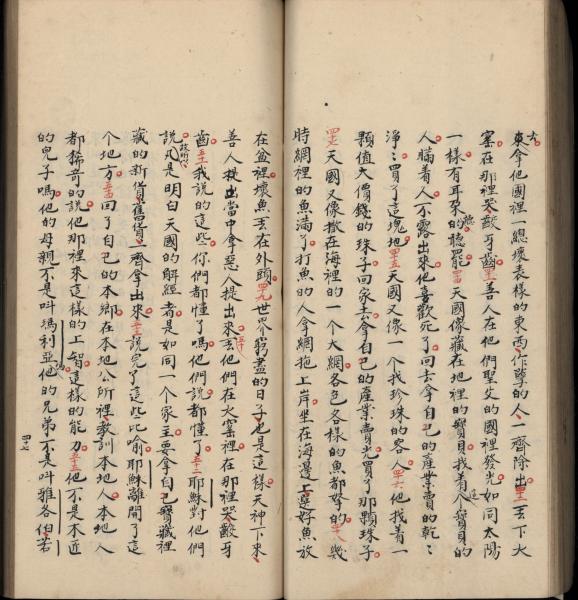 東拿他國裡一總壞表樣的東西作孽的人一齊除出四二丟下火
窰在那裡哭齩牙齒四三善人在他們聖父的國裡發光如同太陽
一樣有耳朶的聽罷四四天國像藏在地裡的寶貝找着這個寶貝的
人瞞着人不露出來他喜歡死了回去拿自己的產業賣的乾〻
淨〻買了這塊地四五天國又像一个找珍珠的客人四六他找着一
顆值大價錢的珠子回家去拿自己的產業賣光買了那顆珠子
四七天國又像撒在海裡的一个大網各色各樣的魚都拏的四八幾
時網裡的魚滿了打魚的人拿網拖上岸坐在海邊上選好魚放
在盆裡壞魚丟在外頭四九世界窮盡的日子也是這樣天神下來
善人提出當中拿惡人提出來五十丟他們在火窰裡在那裡哭齩牙
齒五一我說的這些你們都懂了嗎他們說都懂了五二耶穌對他們
說故所以凡是明白天國的解經者是如同一个家主要拿自己寶藏裡
藏的新貨舊貨一齊拿出來五三說完了這些比喻耶穌離開了這
个地方五四回了自己的本鄉在本地公所裡教訓本地人本地人
都稀奇的說他那裡來這樣的上智這樣的能力五五他不是木匠
的兒子嗎他的母親不是呌瑪利亞他的兄弟不是呌雅各伯若
四十七